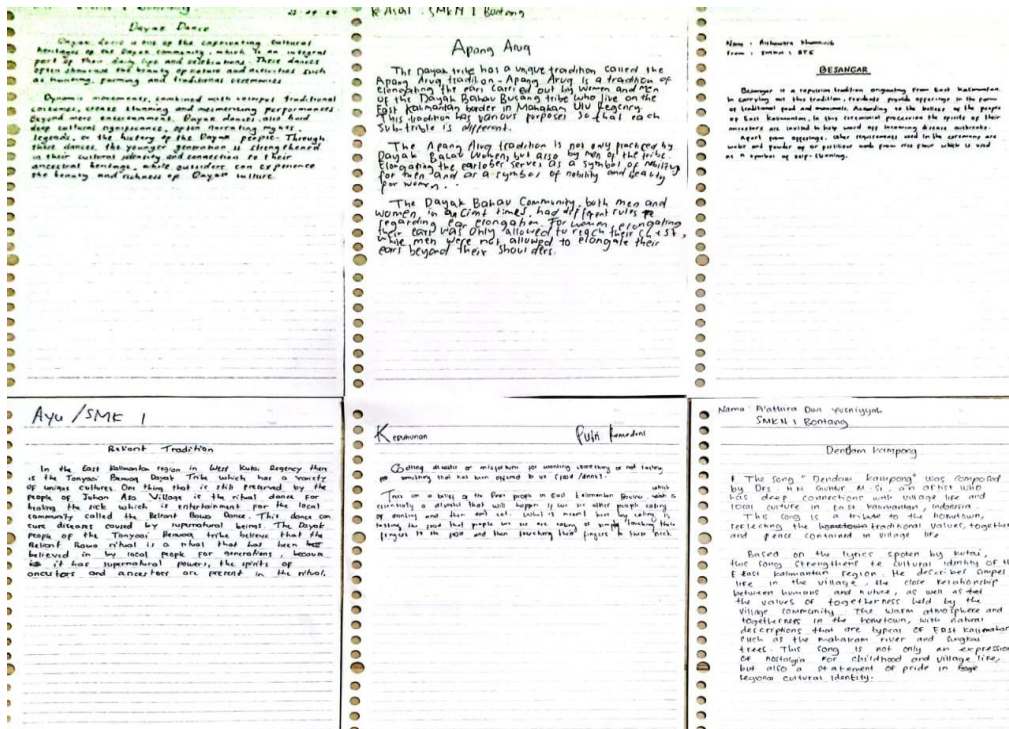 Dayak Dance
Dayak dance is one of the captivating cultural
heritages of the Dayak community, which is an integral
part of their daily life and celebrations. These dances
often showcase the beauty of nature and activities such
as hunting, farming and traditional ceremonies
Dynamic movements, combined with colorful traditional
costumes, create stunning and mesmerizing performances.
Beyond mere entertainment, Dayak dances also hold
deep cultural significance, often narrating myths,
legends, or the history of the Dayak people. Through
these dances, the younger generation is strengthened
in their cultural identity and connection to their
ancestral heritage, while outsiders can experience
the beauty and richness of Dayak culture.
Asal : SMKN 1 Bontang
Apang Aruq
The Dayak tribe has a unique tradition called the
Apang Aruq tradition. Apang Aruq is a tradition of
elongating the ears carried out by women and men
of the Dayak Bahau Busang tribe who live on the
East Kalimantan border in Mahakam Ulu Regency.
This tradition has various purposes so that each
Sub-tribe is different.
The Apang Aruq tradition is not only practiced by
Dayak Bahau women, but also by men of the tribe.
Elongating the earlobes serves as a symbol of nobility
for men and as a symbol of nobility and beauty
for women.
The Dayak Bahau Community, both men and
women, in ancient times, had different rules
regarding ear elongation. For women, elongating
their ears was only allowed to reach their chest,
while men were not allowed to elongate their
ears beyond their shoulders.
Name :
From : SMKN 1 BTG
BESANGAR
Besangar is a repulsion tradition originating from East Kalimantan.
In carrying out this tradition, residents provide offerings in the form
of traditional food and
of East Kalimantan, in this ceremonial procession the spirits of their
ancestors are invited to help ward off incoming disease outbreaks.
Apart from offerings, other requirements used in the ceremony are
water and powder
as a symbol of self-cleaning.
Ayu / SMK 1
Beliant Tradition
In the East Kalimantan region in West Kutai Regency there
is the Tonyooi Benuaq Dayak Tribe which has a variety
of unique cultures. One thing that is still preserved by the
people of Juhan Asa Village is the ritual dance for
healing the sick which is entertainment for the local
community called the Beliant Bawo Dance. This dance can
cure diseases caused by supernatural beings. The Dayak
people of the Tonyooi Benuaq tribe believe that the
Beliant Bawo ritual is a ritual that has been
believed in by local people for generations, because
it has supernatural powers, the spirits of
ancestors and ancestors are present in the ritual.
Kepuhunan
Putri Ramadani
disaster or misfortune for wanting something or not tasting
something that has been offered to us (food /drink).
This is a belief of the people in East Kalimantan Borneo which is
essentially a disaster that will happen if we see other people eating
or drinking and then don't eat. What is meant here by eating is
tasting the food that people we see are eating or simply touching their
fingers to the food and then touching their fingers to their neck.
Nama : A'athira Dwi Yusniyyah
SMKN 1 Bontang
Dendam kampong
The song "Dendam kampong" was composed
by Drs. H.M Guntur M.Si, an artist who
has deep connections with village life and
local culture in East kalimantan, Indonesia.
This song is a tribute to the hometown,
reflecting the traditional values, together
and peace contained in village life
Based on the lyrics spoken by kutai,
this song strengthens te cultural identity of th
East kalimantan region. He describes simpel
life in the village, the close relationship
between humans and nature, as well as
the values of togetherness held by the
village community. The warm atmosphere and
togetherness in the hometown, with natural
descriptions that are typical of East kalimantan
such as the mahakam river and sungkai
trees. This song is not only an expression
of nostalgia for childhood and village life,
but also a statement of pride in
Regional cultural identity.